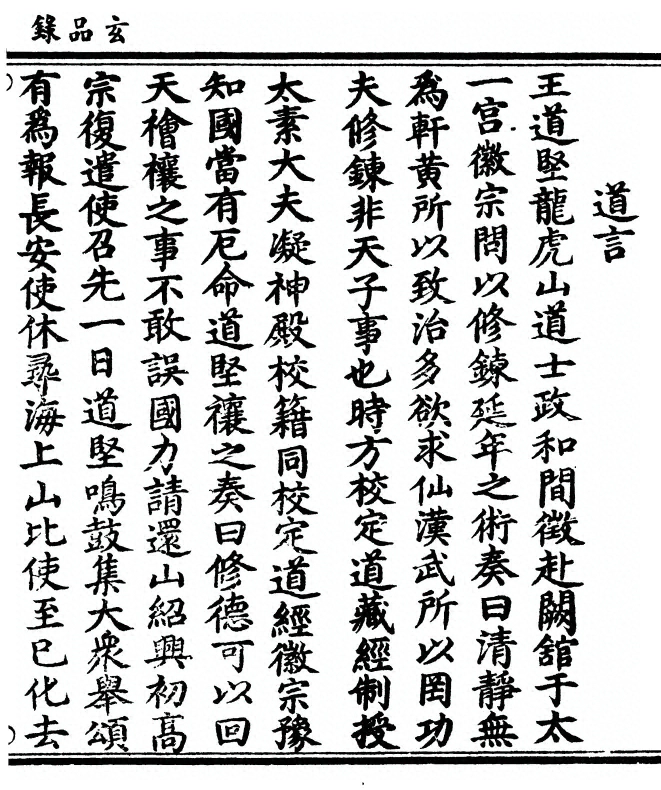 玄品錄
道言
王道堅龍虎山道士政和間徵赴闕舘于太
一宮徽宗問以修鍊延年之術奏曰清靜無
爲軒黃所以致治多欲求仙漢武所以罔功
夫修鍊非天子事也時方校定道藏經制授
太素大夫凝神殿校籍同校定道經徽宗豫
知國當有厄命道堅禳之奏曰修德可以回
天禬禳之事不敢誤國力請還山紹興初高
宗復遣使召先一日道堅鳴鼓集大衆舉頌
有爲報長安使休尋海上山比使至已化去